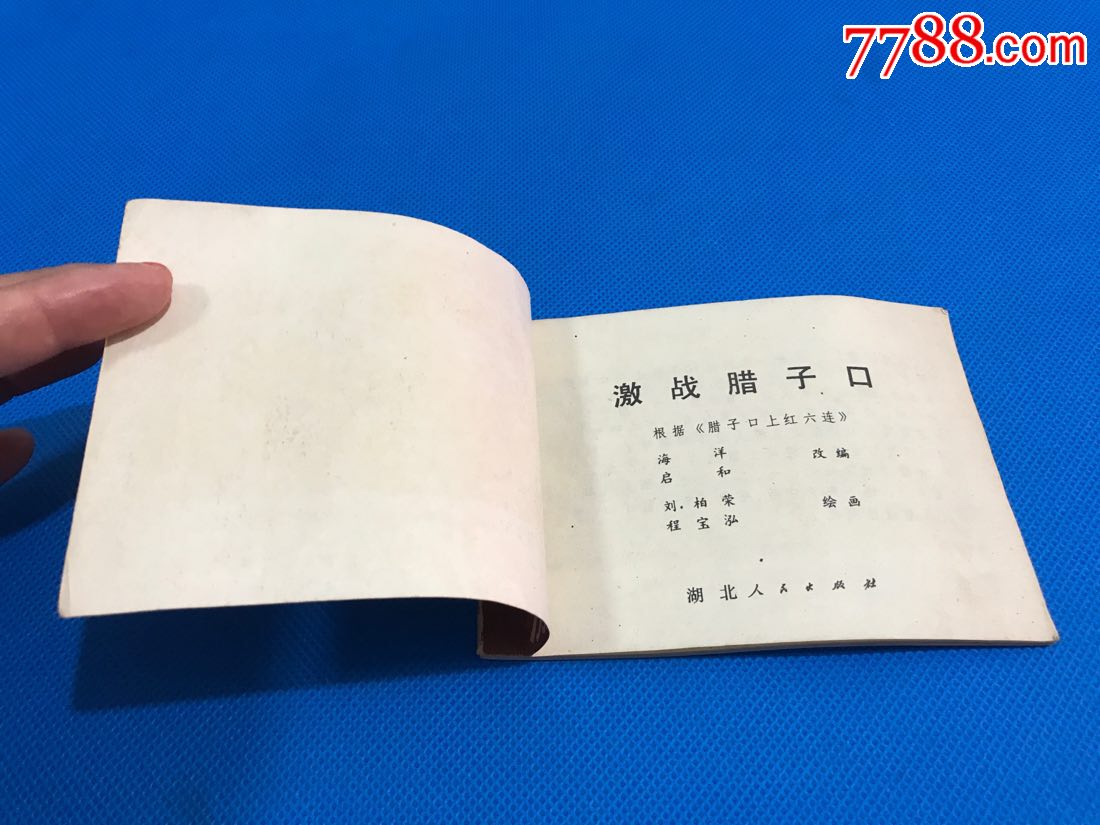 7788.com
激战腊子口
根据《腊子口上红六连》
海洋 改编
启和
刘柏荣 绘画
程宝泓
湖北人民出版社